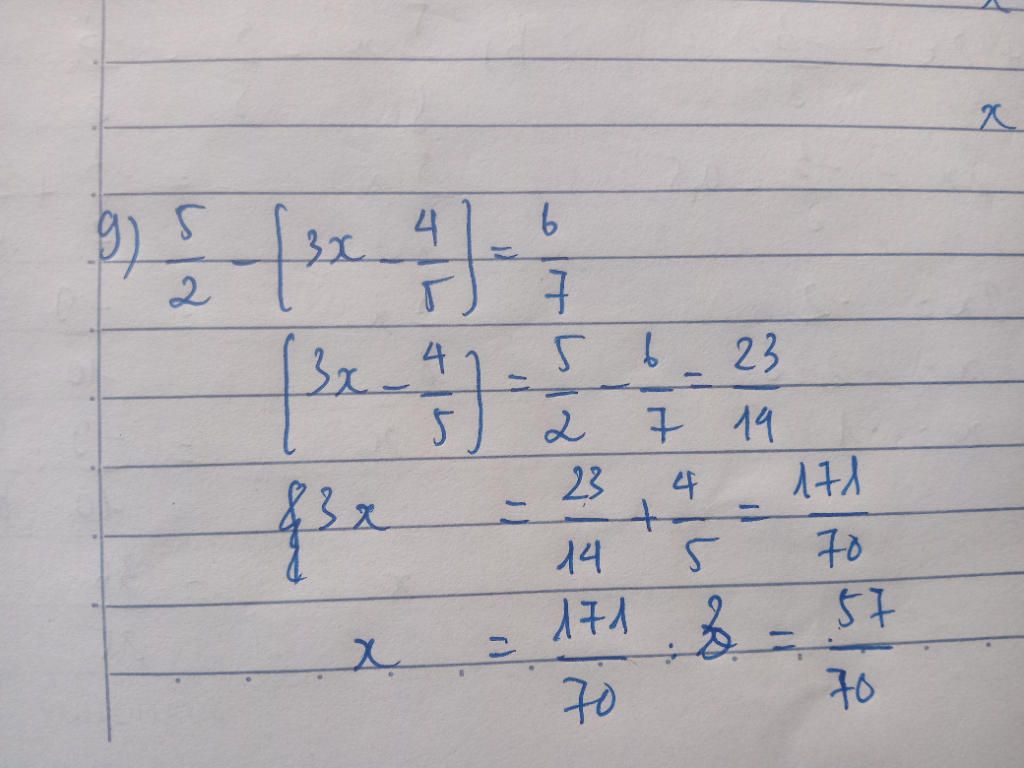 x
g) 5/2 - [3x - 4/5] = 6/7
[3x - 4/5] = 5/2 - 6/7 = 23/14
3x = 23/14 + 4/5 = 171/70
x = 171/70 : 3 = 57/70